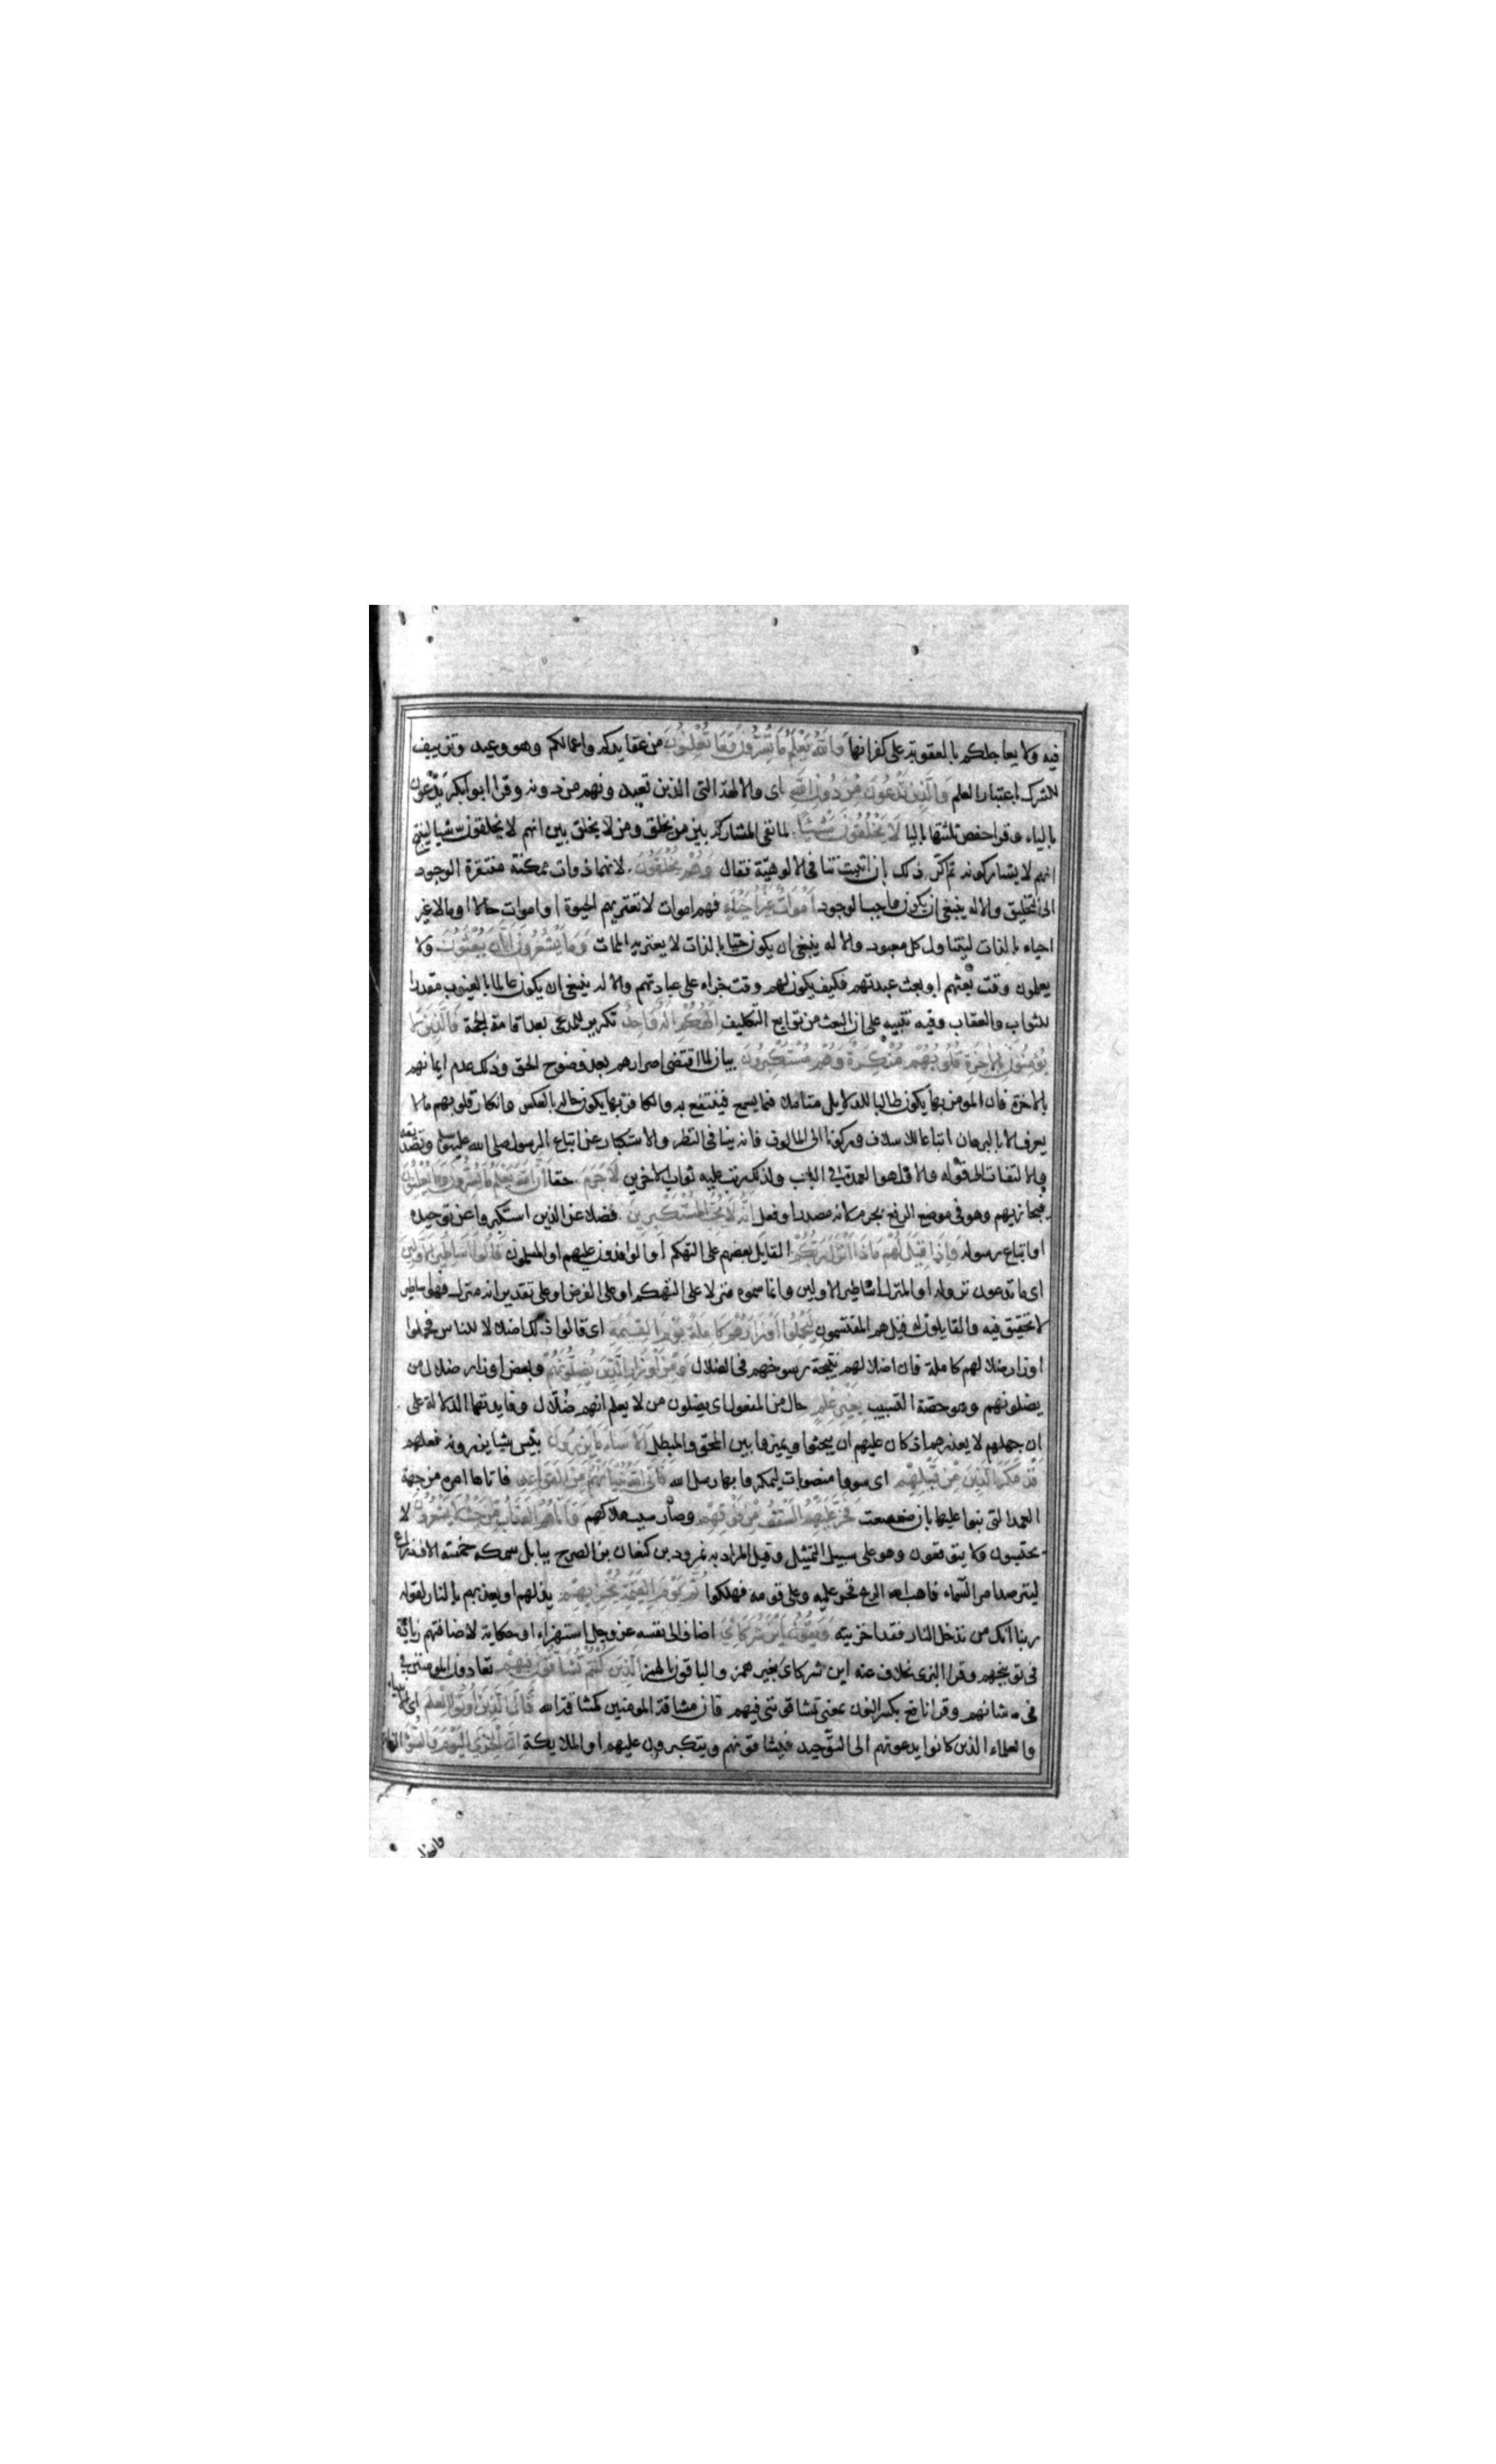 فيه ولا يعاجلكم بالعقوبة على كفرانها وَاللّٰهُ يَعْلَمُ مَا تُسِرُّونَ وَمَا تُعْلِنُونَ من عقايدكم واعمالكم وهو وعيد وتزييف
للشرك باعتبار العلم وَالَّذِينَ تَدْعُونَ مِنْ دُونِ اللّٰهِ اى والالهة التى الذين تعبدونهم من دونه وقرا ابو بكر يَدْعون
بالياء وقرا حفص ثلثتها باليا لَا يَخْلُقُونَ شَيْئًا لما نفى المشاركة بين من يخلق ومن لا يخلق بين انهم لا يخلقون شيا لينتج
انهم لا يشاركونه ثم اكد ذلك بان اثبت تنافى الالوهية فقال وَهُمْ يُخْلَقُونَ لانها ذوات ممكنة مفتقرة الوجود
الى التخليق والاله ينبغى ان يكون واجب الوجود اَمْوَاتٌ غَيْرُ اَحْيَاءٍ فهم اموات لا تعتريهم الحيوة او اموات حالا او مالا غير
احياء بالذات ليتناول كل معبود والاله ينبغى ان يكون حيا بالذات لا يعتريه الممات وَمَا يَشْعُرُونَ اَيَّانَ يُبْعَثُونَ ولا
يعلمون وقت بعثهم او بعث عبدتهم فكيف يكون لهم وقت جزاء على عبادتهم والاله ينبغى ان يكون عالما بالغيوب مقدرا
للثواب والعقاب وفيه تنبيه على ان البعث من توابع التكليف اِلٰهُكُمْ اِلٰهٌ وَاحِدٌ تكرير للمدعى بعد اقامة الحجة فَالَّذِينَ لَا
يُؤْمِنُونَ بِالْاٰخِرَةِ قُلُوبُهُمْ مُنْكِرَةٌ وَهُمْ مُسْتَكْبِرُونَ بيان لما اقتضى اصرارهم بعد وضوح الحق وذلك عدم ايمانهم
بالاخرة فان المومن بها يكون طالبا للدلايل متاملا فيما يسمع فينتفع به والكافر بها يكون حاله بالعكس وانكار قلوبهم مالا
يعرف الا بالبرهان اتباعا للاسلاف وركونا الى المالوف فانه ينافى النظر والاستكبار عن اتباع الرسول صلى الله عليه وسلم وتصديقه
والالتفات الى قوله والاول هو العمدة فى الباب ولذلك رتب عليه ثبوت الاخرين لَا جَرَمَ حقا اَنَّ اللّٰهَ يَعْلَمُ مَا يُسِرُّونَ وَمَا يُعْلِنُونَ
فيجازيهم وهو فى موضع الرفع بجرم لانه مصدر او فعل اِنَّهُ لَا يُحِبُّ الْمُسْتَكْبِرِينَ فضلا عن الذين استكبروا عن توحيده
او اتباع رسوله وَاِذَا قِيلَ لَهُمْ مَاذَا اَنْزَلَ رَبُّكُمْ القايل بعضهم على التهكم او الوافدون عليهم او المسلمون قَالُوا اَسَاطِيرُ الْاَوَّلِينَ
اى ما تدعون نزوله او المنزل اساطير الاولين وانما سموه منزلا على التهكم او على الفرض او على تقدير انه منزل فهو اساطير
لا تحقيق فيه والقايلون قيل هم المقتسمون لِيَحْمِلُوا اَوْزَارَهُمْ كَامِلَةً يَوْمَ الْقِيٰمَةِ اى قالوا ذلك اضلالا للناس فحملوا
اوزار ضلالهم كاملة فان اضلالهم نتيجة رسوخهم فى الضلال وَمِنْ اَوْزَارِ الَّذِينَ يُضِلُّونَهُمْ وبعض اوزار ضلال من
يضلونهم وهو حصة التسبيب بِغَيْرِ عِلْمٍ حال من المفعول اى يضلون من لا يعلم انهم ضُلّال وفايدتها الدلالة على
ان جهلهم لا يعذرهم اذ كان عليهم ان يبحثوا ويميزوا بين المحق والمبطل اَلَا سَاءَ مَا يَزِرُونَ بئس شيا يزرونه فعلهم
قَدْ مَكَرَ الَّذِينَ مِنْ قَبْلِهِمْ اى سووا منصوبات ليمكروا بها رسل الله فَاَتَى اللّٰهُ بُنْيَانَهُمْ مِنَ الْقَوَاعِدِ فاتاها امره من جهة
العمد التى بنوا عليها بان ضعضعت فَخَرَّ عَلَيْهِمُ السَّقْفُ مِنْ فَوْقِهِمْ وصار سبب هلاكهم وَاَتٰاهُمُ الْعَذَابُ مِنْ حَيْثُ لَا يَشْعُرُونَ لا
يحتسبون ولا يتوقعون وهو على سبيل التمثيل وقيل المراد به نمرود بن كنعان بنى الصرح ببابل سمكه خمسة الاف ذراع
ليترصد امر السماء فاهب الله الريح فخر عليه وعلى قومه فهلكوا ثُمَّ يَوْمَ الْقِيٰمَةِ يُخْزِيهِمْ يذلهم او يعذبهم بالنار لقوله
ربنا انك من تدخل النار فقد اخزيته وَيَقُولُ اَيْنَ شُرَكَائِيَ اضاف الى نفسه عز وجل استهزاء او حكاية لاضافتهم زيادة
فى توبيخهم وقرا البزى بخلاف عنه اين شركاى بغير همز والباقون بالهمز الَّذِينَ كُنْتُمْ تُشَاقُّونَ فِيهِمْ تعادون المومنين فى
فى شانهم وقرا نافع بكسر النون بمعنى تشاقوننى فيهم فان مشاقة المومنين كمشاقة الله قَالَ الَّذِينَ اُوتُوا الْعِلْمَ اى الانبياء
والعلماء الذين كانوا يدعونهم الى التوحيد فيشاقونهم ويتكبرون عليهم او الملايكة اِنَّ الْخِزْيَ الْيَوْمَ وَالسُّوءَ